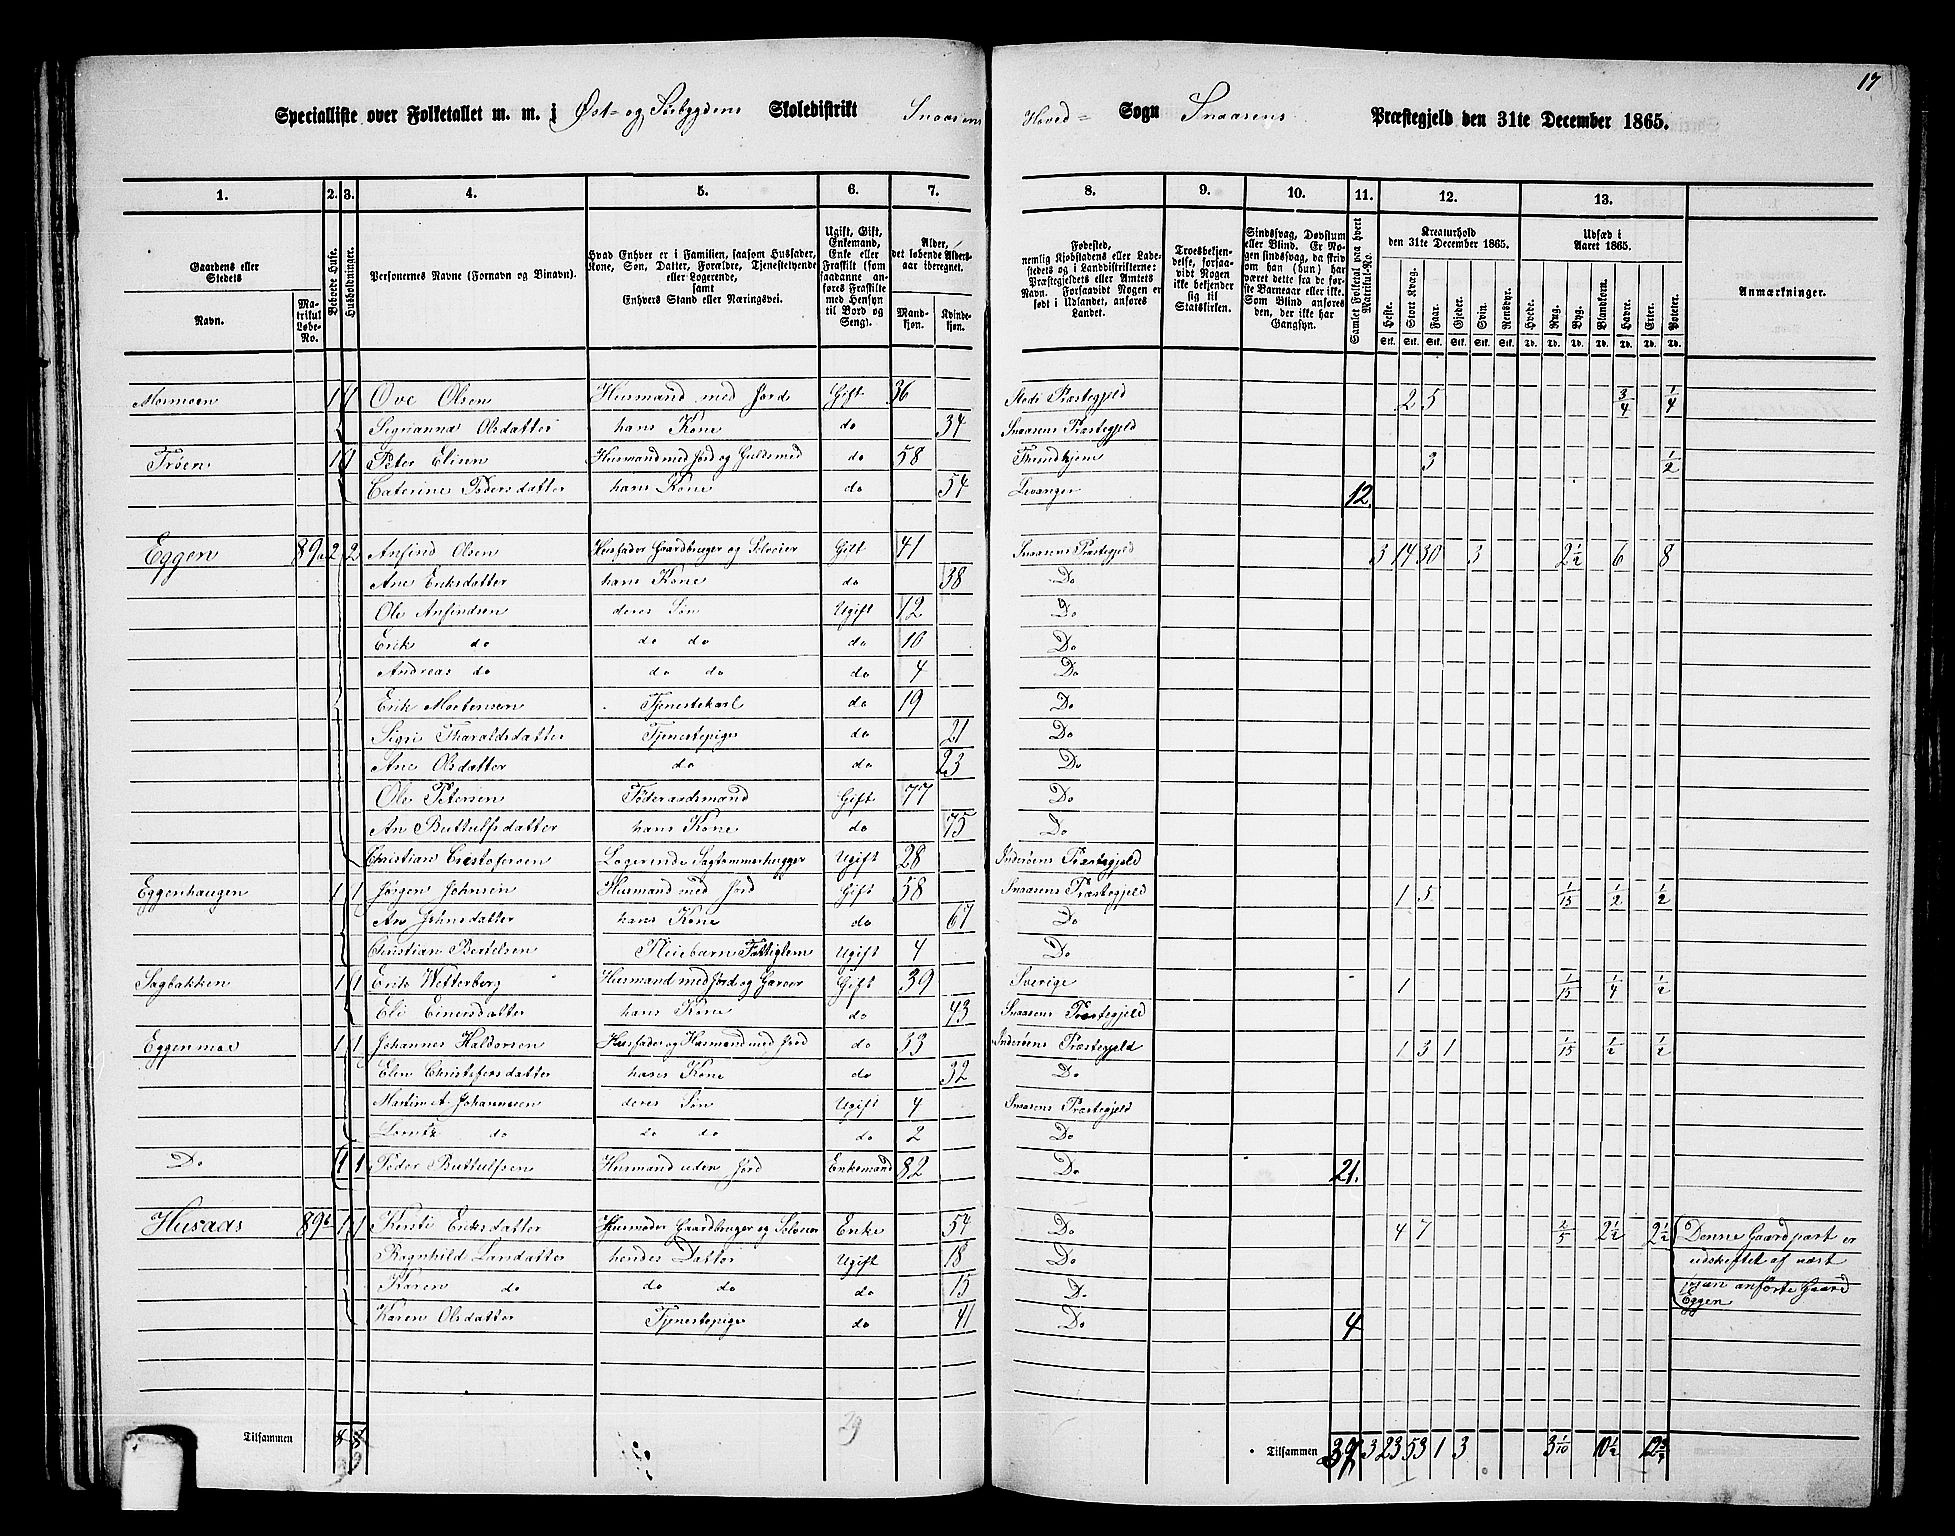 17
Specialliste over Folketallet m. m. i Øst- og Sørbygdens Skoledistrikt Snaasens Hoved- Sogn Snaasens Præstegjeld den 31te December 1865.
1. 2. 3. 4. 5. 6. 7. 8. 9. 10. 11. 12. 13.
Gaardens eller Stedets
Navn.
Matrikul Løbe-No.
Beboede Huse.
Husholdninger.
Personernes Navne (Fornavn og Binavn).
Hvad Enhver er i Familien, saasom Husfader, Kone, Søn, Datter, Forældre, Tjenestetyende eller Logerende, samt Enhvers Stand eller Næringsvei.
Ugift, Gift, Enkemand, Enke eller Fraskilt (som saadanne anføres Fraskilte med Hensyn til Bord og Seng).
Alder, det løbende Aldersaar iberegnet.
Mandkjøn. Kvindekjøn.
Fødested, nemlig Kjøbstadens eller Ladestedets og i Landdistrikterne: Præstegjeldets eller Amtets Navn. Forsaavidt Nogen er født i Udlandet, anføres Landet.
Troesbekjendelse, forsaavidt Nogen ikke bekjender sig til Statskirken.
Sindssvag, Døvstum eller Blind. Er Nogen sindssvag, da skriv om han (hun) har været dette fra de første Barneaar eller ikke. Som Blind anføres den, der ikke har Gangsyn.
Samlet Folketal paa hvert Matrikul-No.
Kreaturhold den 31te December 1865.
Heste. Stort Kvæg. Faar. Gjeder. Svin. Rensdyr.
Udsæd i Aaret 1865.
Hvede. Rug. Byg. Blandkorn. Havre. Erter. Poteter.
Anmærkninger.
Mosmoen 1 1 Ove Olsen Husmand med Jord Gift 36 Stods Præstegjeld 2 5 3/4 1/4
Sigrianna Olsdatter hans Kone do 34 Snaasens Præstegjeld
Trøen Peter Elisen Husmand med Jord og Guldsmed do 58 Thrundhjem 3 1/2
Caterine Pedersdatter hans Kone do 54 Levanger 12
Eggen 89a 2 2 Anfind Olsen Husfader Gaardbruger og Selveier Gift 41 Snaasens Præstegjeld 3 14 30 3 2 1/2 6 8
Ane Eriksdatter hans Kone do 38 Do
Ole Anfindsen deres Søn Ugift 12 Do
Erik do do do do 10 Do
Andreas do do do do 4 Do
Erik Mortensen Tjenestekarl do 19 Do
Sigri Tharaldsdatter Tjenestepige do 21 Do
Ane Olsdatter do do 23 Do
Ole Petersen Føderaadsmand Gift 77 Do
An Buttulfsdatter hans Kone do 75 Do
Christian Cristofersen Logerende Sagtømmerhugger Ugift 28 Inderøens Præstegjeld
Eggenhaugen 1 1 Jørgen Johnsen Husmand med Jord Gift 58 Snaasens Præstegjeld 1 5 1/15 1/2 1/2
An Johnsdatter hans Kone do 67 Do
Christian Bertelsen Pleiebarn Fattiglem Ugift 4 Do
Sagbakken 1 1 Erik Wetterberg Husmand med Jord og Garver Gift 39 Sverige 1 1/15 1/4 1/2
Eli Einersdatter hans Kone do 43 Snaasens Præstegjeld
Eggenmoe 1 1 Johannes Haldorsen Husfader og Husmand med Jord do 33 Inderøens Præstegjeld 1 3 1 1/15 1/2 1/2
Elen Christofersdatter hans Kone do 32 Do
Martin A. Johannesen deres Søn Ugift 4 Snaasens Præstegjeld
Lorntz do do do do 2 Do
Do 1 1 Peder Buttulfsen Husmand uden Jord Enkemand 82 Do 21.
Husaas 89b 1 1 Kirsti Eriksdatter Husmoder Gaardbruger og Selveier Enke 54 Do 4 7 2/5 2 1/2 2 1/2 Denne Gaardpart er
Ragnhild Larsdatter hendes Datter Ugift 18 Do udskiftet af næst
Karen do do do do 15 Do foran anførte Gaard
Eggen
Karen Olsdatter Tjenestepige do 41 Do 4
29
Tilsammen 8 8
9
Tilsammen 37 3 23 53 1 3 3 1/10 10 1/2